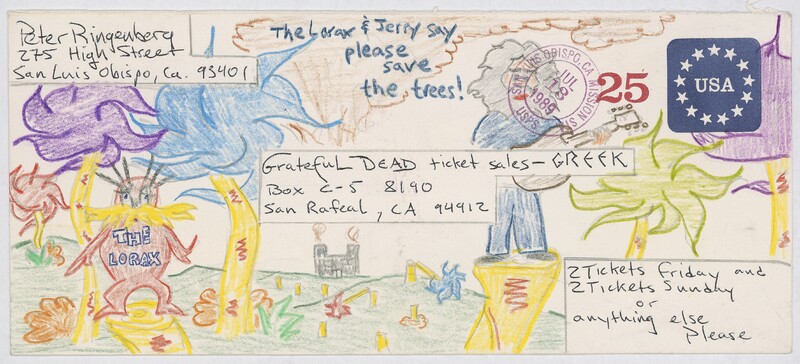 Peter Ringenberg
275 High Street
San Luis Obispo, Ca. 93401
The Lorax & Jerry say,
please
save
the trees!
SAN LUIS OBISPO, CA MISSION S
JUL
1989
USPS
25
USA
GratefuL DEAD ticket sales - GREEK
Box C-5 8190
San Rafeal, CA 94912
THE
LORAX
2 Tickets Friday and
2 Tickets Sunday
or
anything else
Please